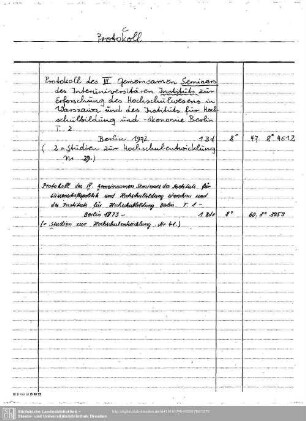 Protokoll
Protokoll des III. gemeinsamen Seminars
des Interuniversitären Instituts zur
Erforschung des Hochschulwesens in
Warszawa und des Instituts für Hoch-
schulbildung und -ökonomie Berlin
T. 2
Berlin 1972 131 8° 47. 8° 4612
(= Studien zur Hochschulentwicklung
Nr. 29.)
Protokoll des IV. gemeinsamen Seminars des Instituts für
Wissenschaftspolitik und Hochschulbildung Warschau und
des Instituts für Hochschulbildung Berlin. T. 1 -
Berlin 1973 - 8°
(= Studien zur Hochschulentwicklung. Nr 41.)